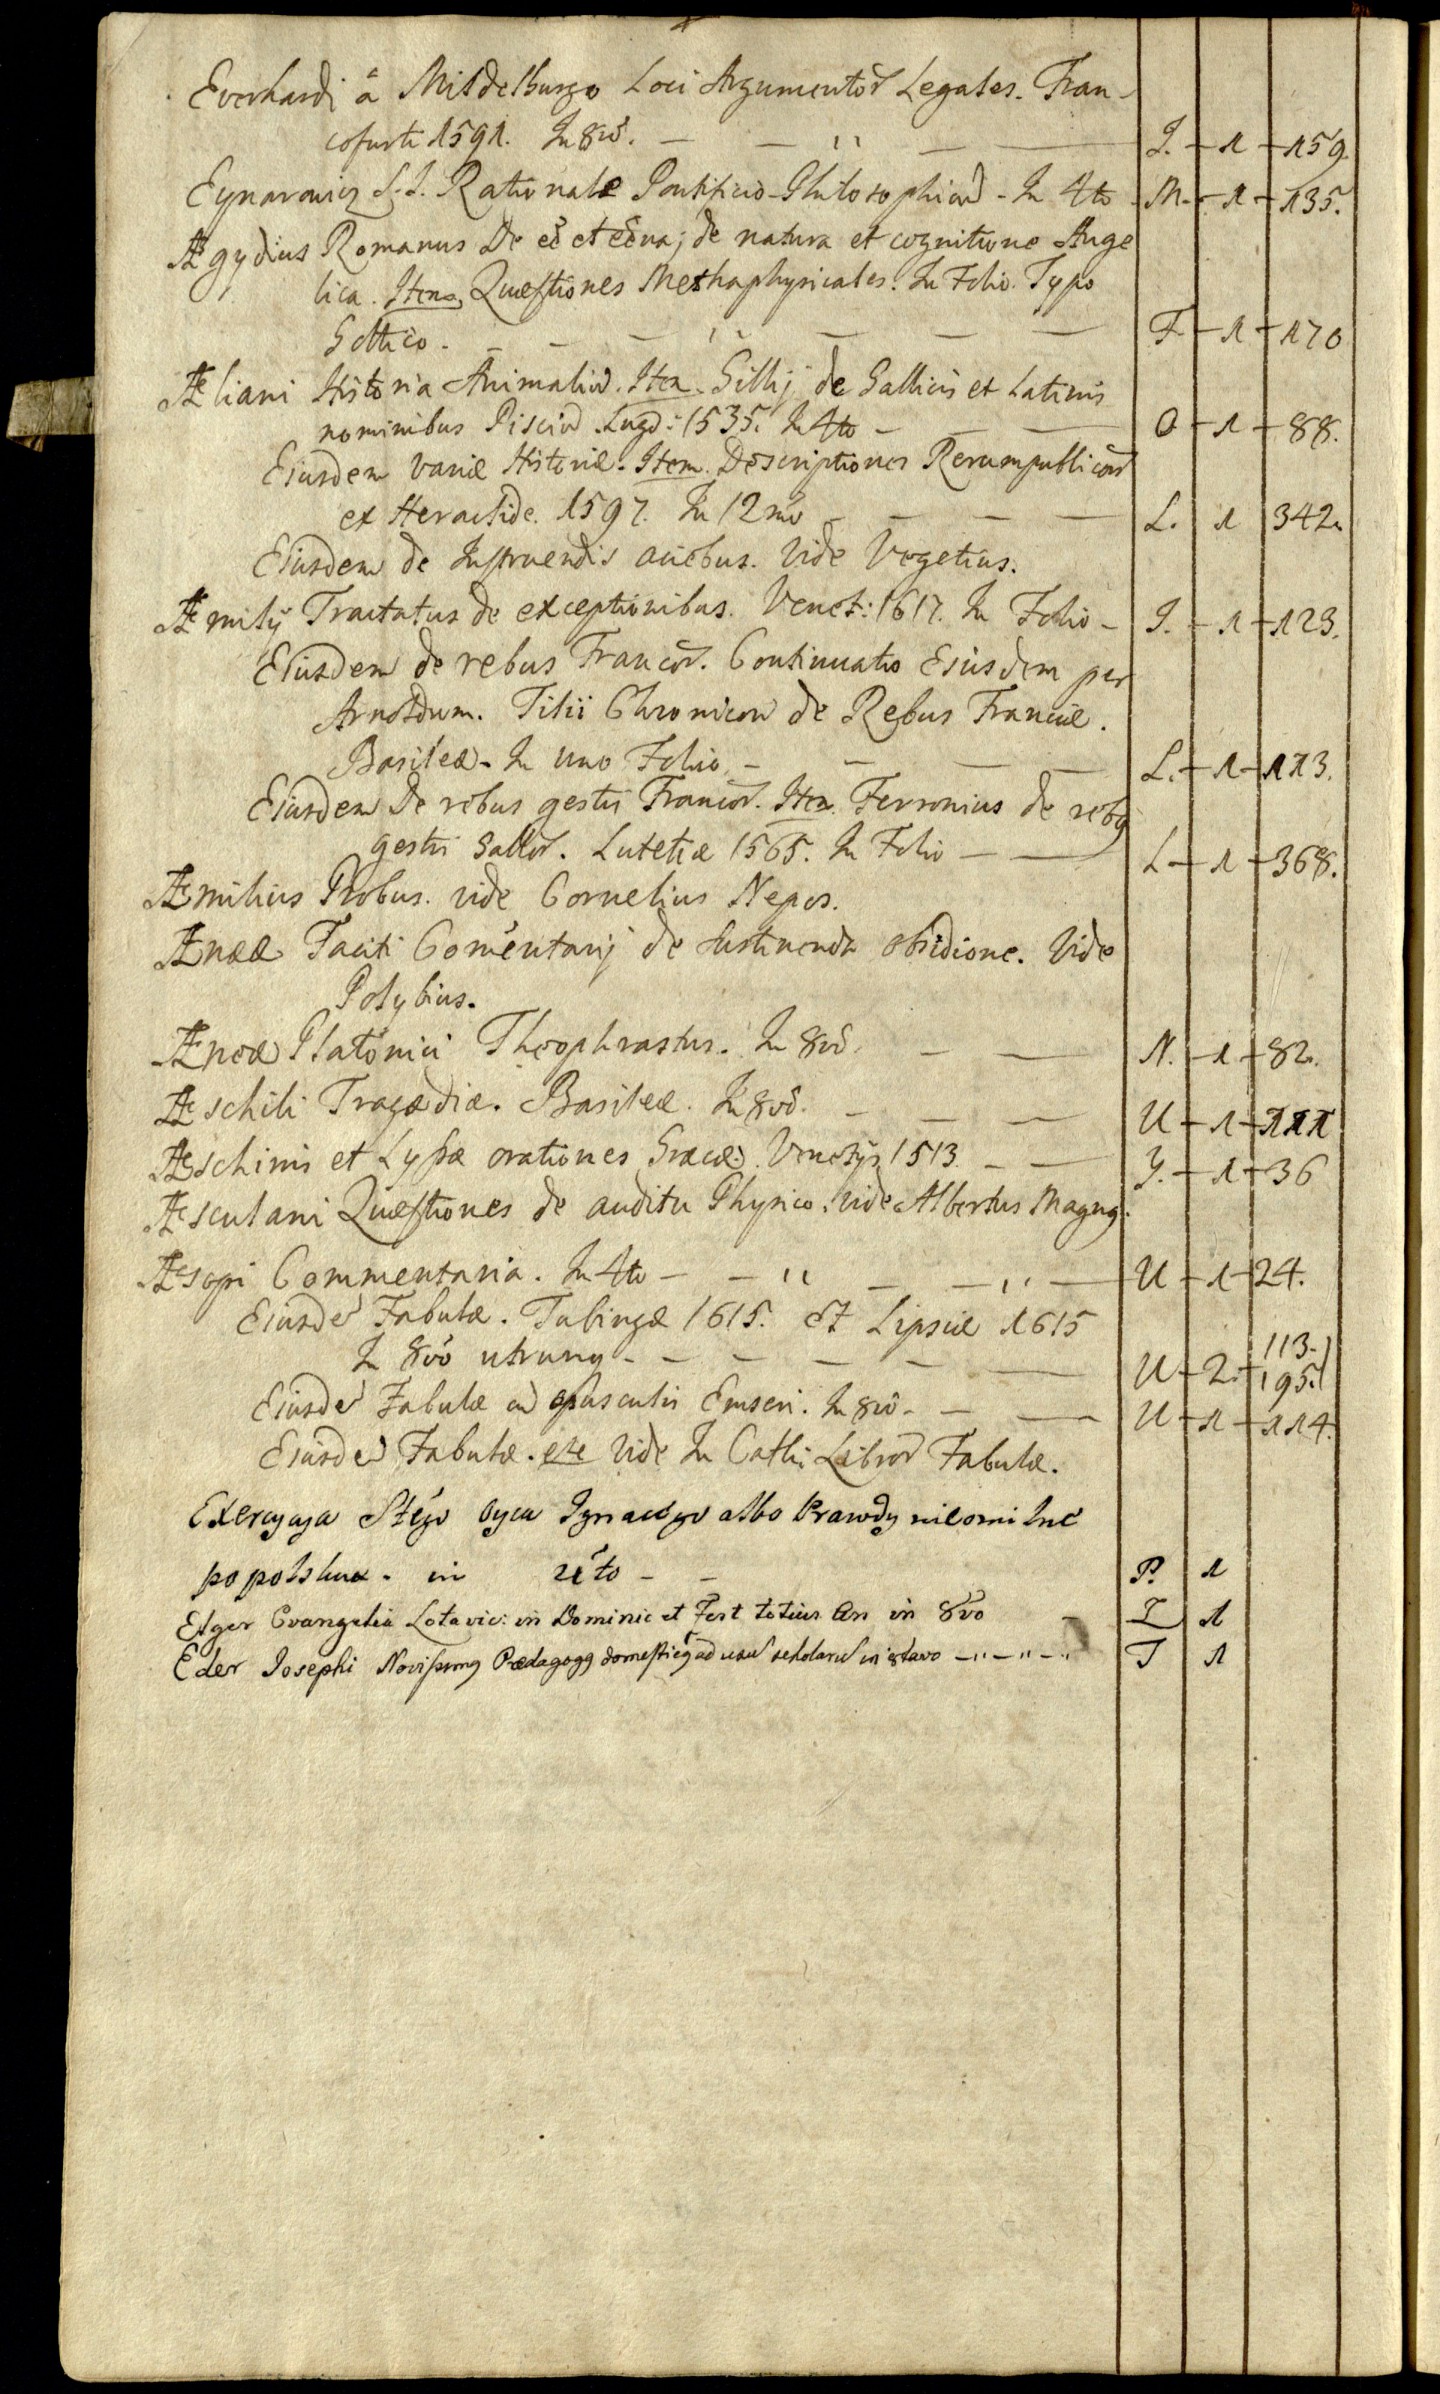 Everhardi â Middelburgo Loci Argumentor Legales. Fran-
cofurti 1591. In 8vo. — — — — J. 1 159.
Eynarowicz S.J. Rationale Pontificio-Philosophicũ - In 4to M. 1 135.
Ægydius Romanus De eẽ et eẽna; de natura et cognitione Ange
lica. Item Quæstiones Methaphysicales. In Folio. Typo
Gottico. — — — — — F. 1 170
Æliani Historia Animaliũ. Item Gillij de Gallicis et Latinis
nominibus Pisciũ. Lugd: 1535. In 4to — — — O 1 88.
Eiusdem variæ Historiæ. Item. Descriptiones Rerumpublicar
ex Heraclide. 1597. In 12mo — — — L. 1 342.
Eiusdem de Instruendis aciebus. Vide Vegetius.
Æmilij Tractatus de exceptionibus. Venet: 1617. In Folio — J. 1 123.
Eiusdem de rebus Francor. Continuatio Eiusdem per
Arnoldum. Tilii Chronicon de Rebus Franciæ.
Basileæ. In uno Folio — — — — L. 1 113.
Eiusdem De rebus gestis Francor. Item Ferronius de rebq
gestis Gallor. Lutetiæ 1565. In Folio — — L 1 368.
Æmilius Probus. vide Cornelius Nepos.
Æneæ Taciti Com̃entarij de sustinenda obsidione. Vide
Polybius.
Æneæ Platonici Theophrastus. In 8vo. — — N. 1 82.
Æschili Tragædiæ. Basileæ. In 8vo. — — — U 1 111
Æschinis et Lysiæ orationes Græcæ. Venetijs 1513 — — J. 1 36
Æsculani Quæstiones de auditu Physico. vide Albertus Magnq.
Æsopi Commentaria. In 4to — — — — — U 1 24.
Eiusdẽ Fabulæ. Tubingæ 1615. Et Lipsiæ 1615
In 8vo utrumq — — — — — — U 2. 113. 195.
Eiusdẽ Fabulæ cũ opusculis Emseri. In 8vo — — — U 1 114.
Eiusdẽ Fabulæ. etc Vide In Cathi Libror Fabulæ.
Exercycya Stego oyca Ignacego albo Prawdy
po polsku. in 4to — — P. 1
Elger Evangelia Lotavic: in Dominic et Fest totius An in 8vo I 1
Eder Josephi Novissimq Pædagogq domesticq ad usũ scholarũ in 8tavo — „ — „ — „ J 1